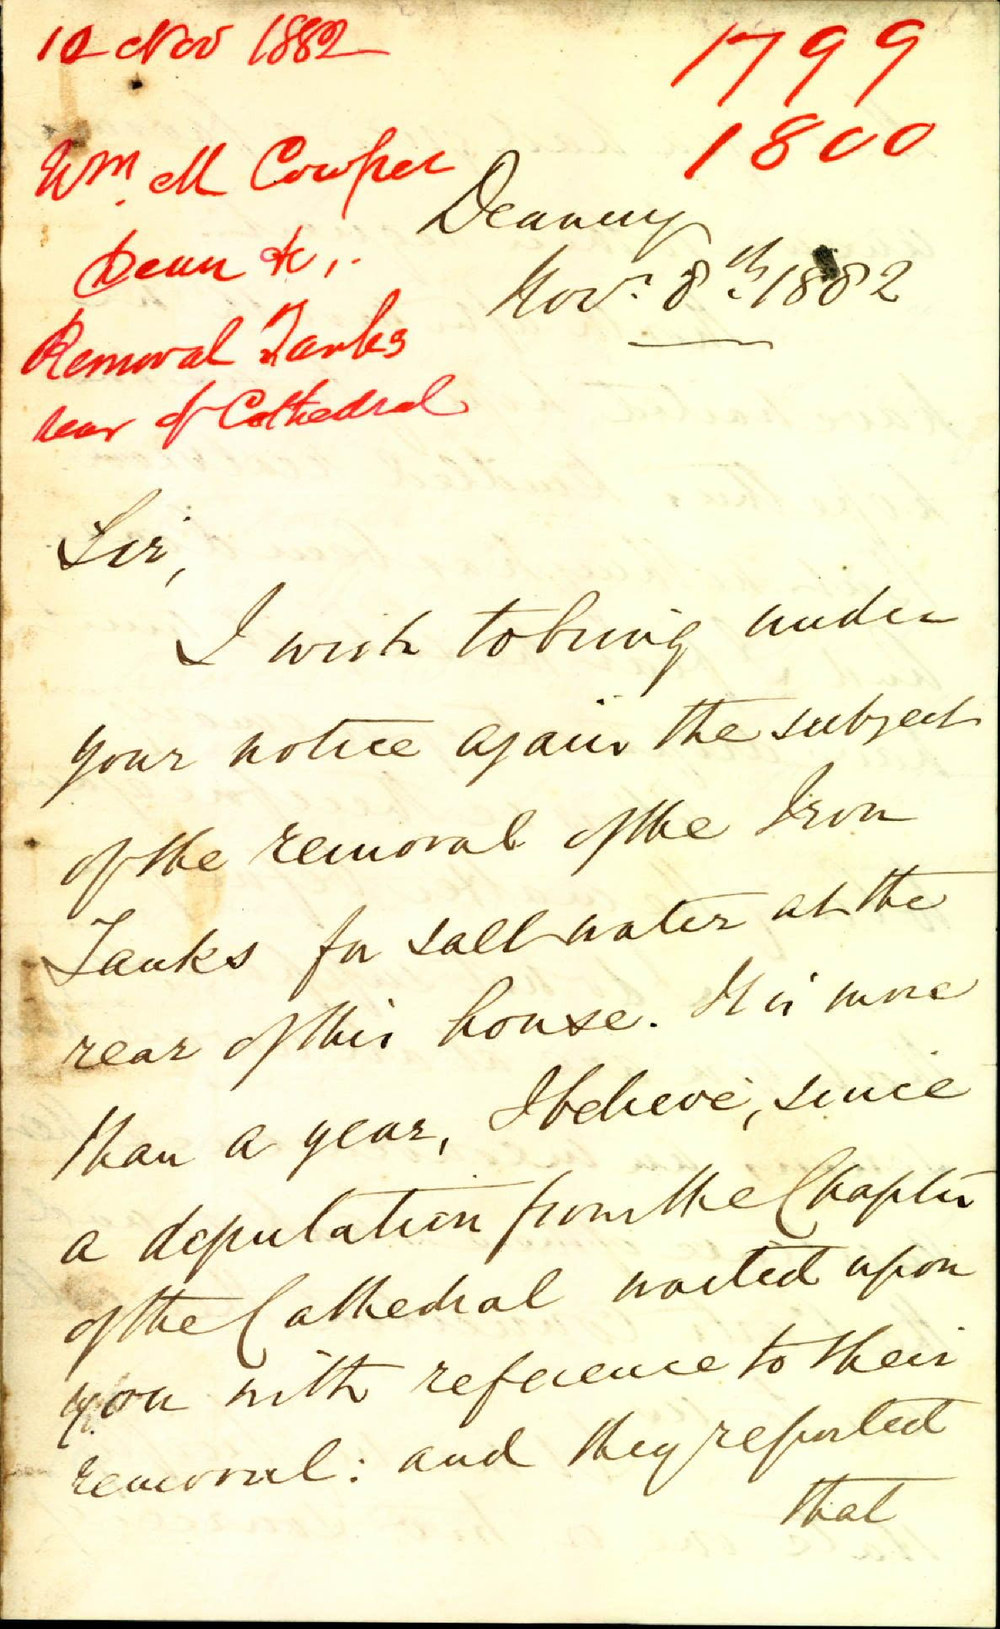 10 Nov 1882
1799
1800
Wm. M Cowper
Dean &c,.
Removal Tanks
rear of Cathedral
Deanery
Novr. 8th. 1882
Sir,
I wish to bring under
your notice again the subject
of the removal of the Iron
Tanks for salt water at the
rear of this house. It is more
than a year, I believe, since
a deputation from the Chapter
of the Cathedral waited upon
you with reference to their
removal: and they reported
that